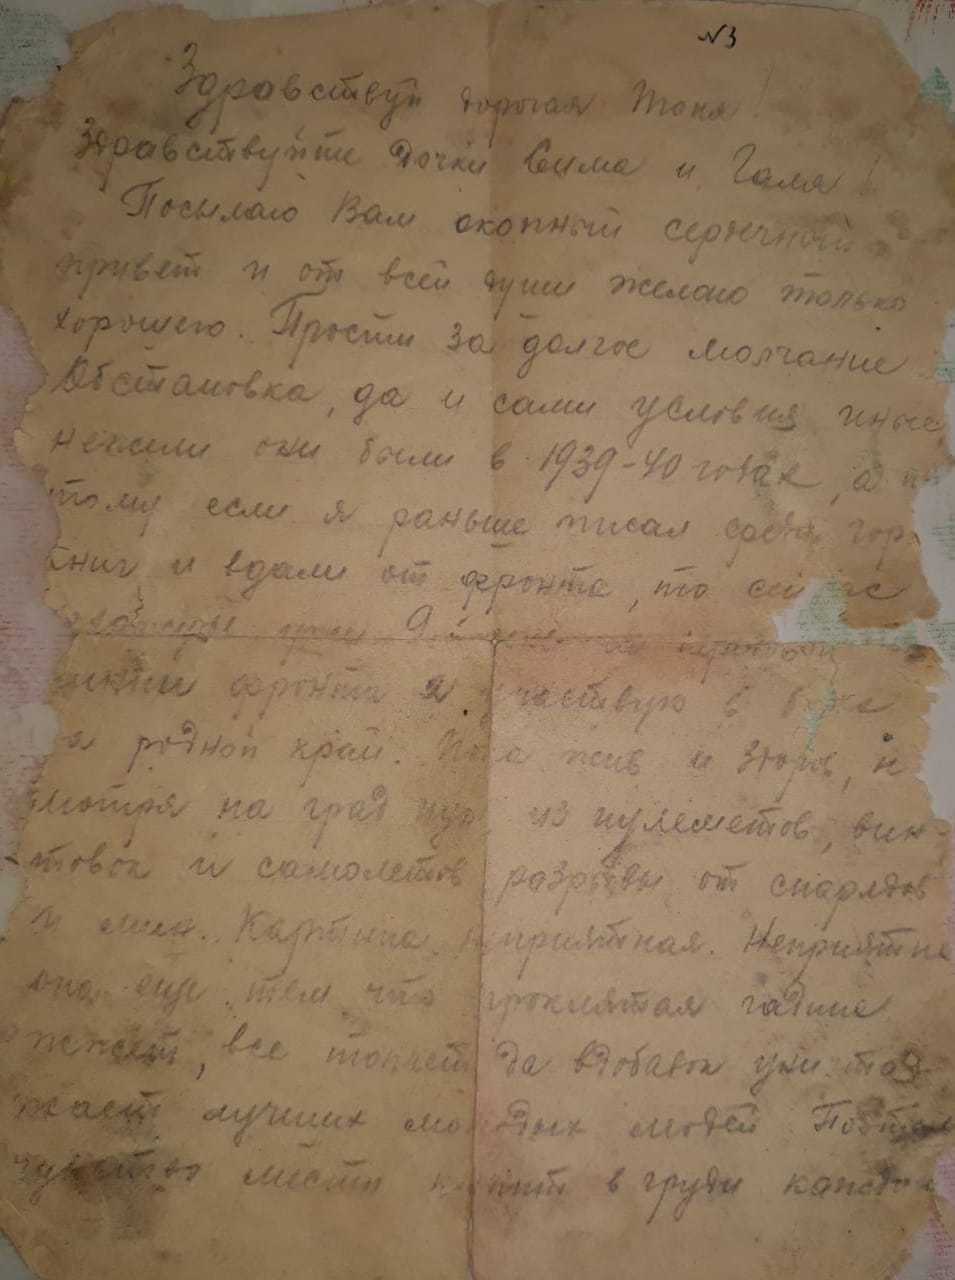 №3
Здравствуй дорогая Тоня!
Здравствуйте дочки Сима и Галя!
Посылаю Вам окопный сердечный
привет и от всей души желаю только
хорошего. Прости за долгое молчание
Обстановка, да и сами условия иные
нежели они были в 1939-40 годах, а п
тому если я раньше писал среди гор
книг и вдали от фронта, то
фронта я участвую в
родной край. жив и здоров, н
смотря на град из пулеметов, вин-
товок и самолетов разрывы от снарядов
и мин. Картина неприятная. Неприятне
она еще тем что проклятая гадина
жжет, все топчет да вдобавок уни
жает лучших молодых людей
чувство мести кипит в груди каждо